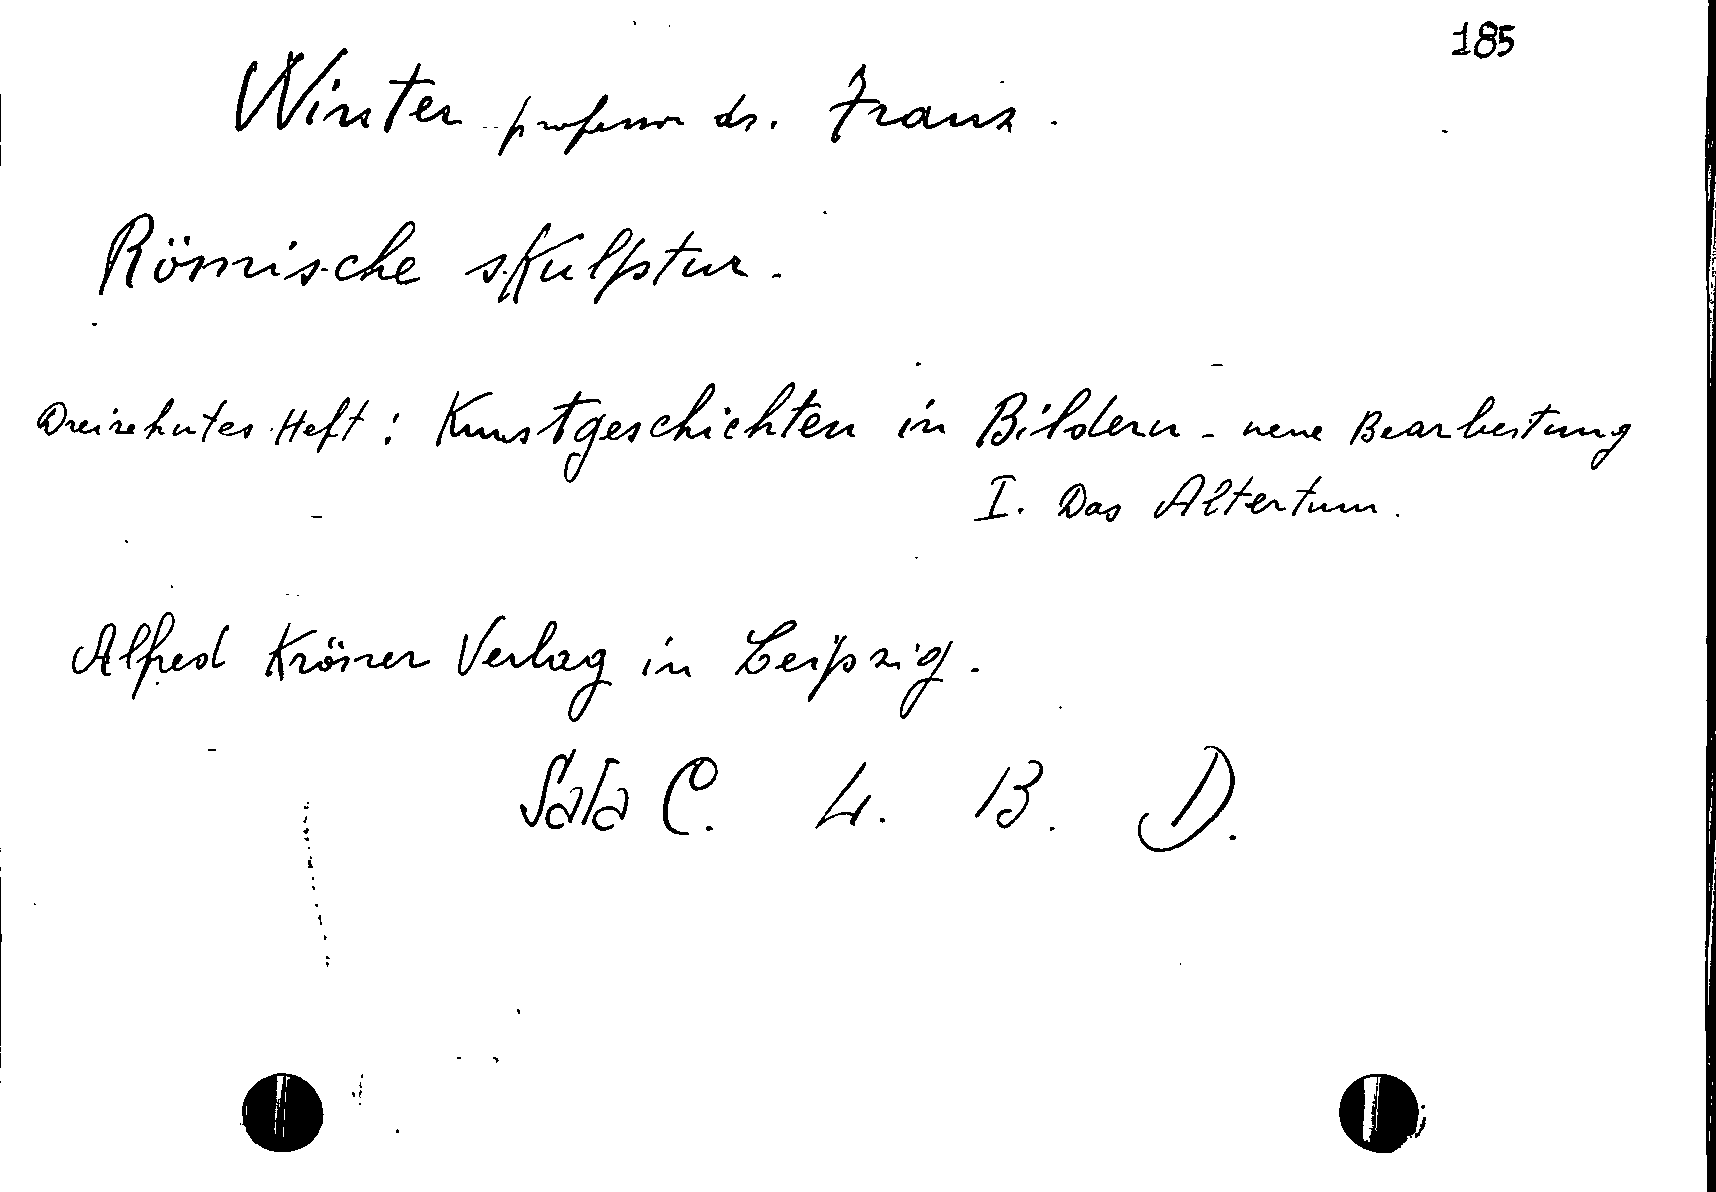 185
Winter professor dr. Franz.
Römische skulptur.
Dreizehntes Heft: Kunstgeschichten in Bildern - neue Bearbeitung
I. Das Altertum.
Alfred Kröner Verlag in Leipzig.
Sala C. L. B. D.